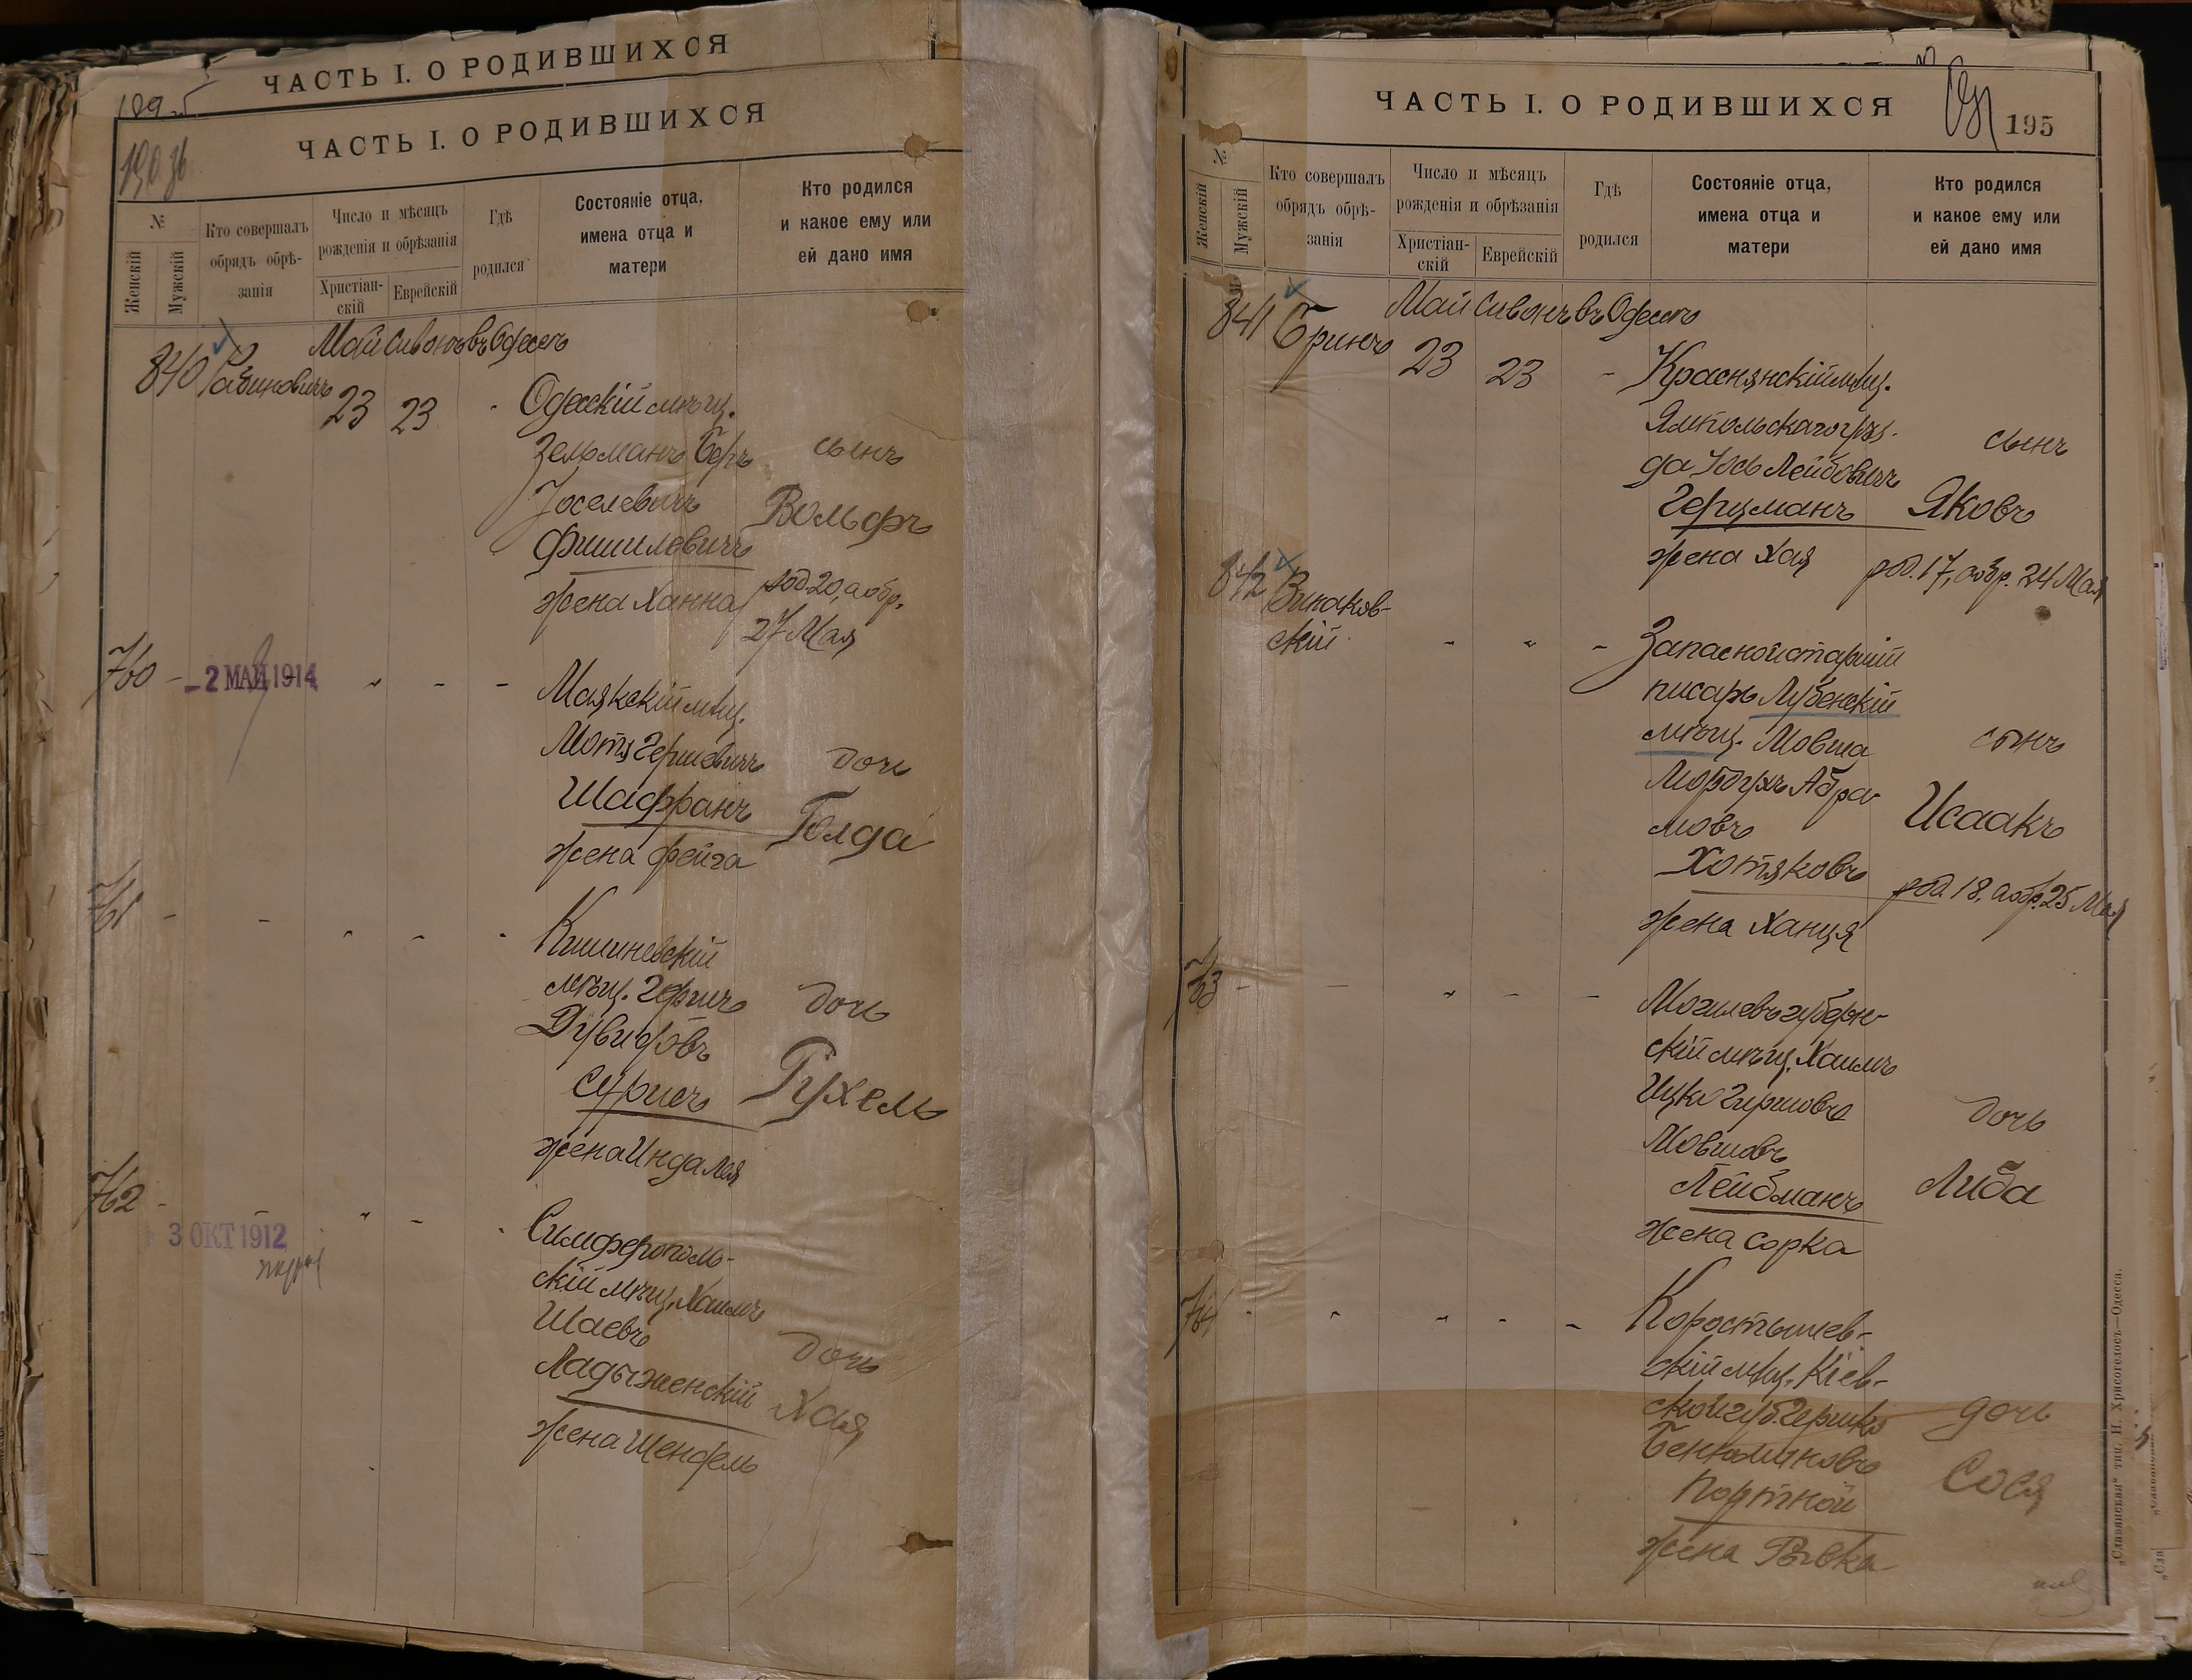 ЧАСТЬ I. О РОДИВШИХСЯ
ЧАСТЬ I. О РОДИВШИХСЯ
№
Женскій
Мужскій
Кто совершалъ
обрядъ обрѣ-
занія
Число и мѣсяцъ
рожденія и обрѣзанія
Христіан-
скій
Еврейскій
Гдѣ
родился
Состояніе отца,
имена отца и
матери
Кто родился
и какое ему или
ей дано имя
Май Сивонъ въ Одессѣ
840 Рабиновичъ 23 23 Одесскій мѣщ.
Зельманъ Беръ сынъ
Іоселевичъ Вольфъ
Фишилевичъ
жена Ханна род. 20, а обр.
27 Мая
760 - - 2 МАЙ 1914 " - - Маякскій мѣщ.
Мотя Гершевичъ дочь
Шафранъ Голда
жена Фейга
761 - - " - - Кишиневскій
мѣщ. Гершъ дочь
Дувидовъ
Сурисъ Рухель
жена Индалея
762 - - " - -
3 ОКТ 1912
Симферополь-
скій мѣщ. Хаимъ
Шаевъ дочь
Ладыженскій Хая
жена Шендель
ЧАСТЬ I. О РОДИВШИХСЯ
195
№
Женскій
Мужскій
Кто совершалъ
обрядъ обрѣ-
занія
Число и мѣсяцъ
рожденія и обрѣзанія
Христіан-
скій
Еврейскій
Гдѣ
родился
Состояніе отца,
имена отца и
матери
Кто родился
и какое ему или
ей дано имя
Май Сивонъ въ Одессѣ
841 Бринъ 23 23 - Краснянскій мѣщ.
Ямпольскаго уѣз-
да Іось Лейбовичъ сынъ
Герцманъ Яковъ
жена Хая род. 17, а обр. 24 Мая
842 Зинаков-
скій " " - Запасной старшій
писарь Лубенскій
мѣщ. Мовша сынъ
Мордухъ Абра-
мовъ Исаакъ
Хотяковъ
жена Ханця род. 18, а обр. 25 Мая
763 - - " - - Могилевъ губерн-
скій мѣщ. Хаимъ
Ицко Гиршовъ дочь
Мовшовъ
Лейбманъ Либа
жена Сорка
764 - " " - - Коростышев-
скій мѣщ. Кіев-
ской губ. Гершко дочь
Беньюминовъ
Портной Сося
жена Ривка
„Славянская“ тип. Н. Хрисогелосъ—Одесса.